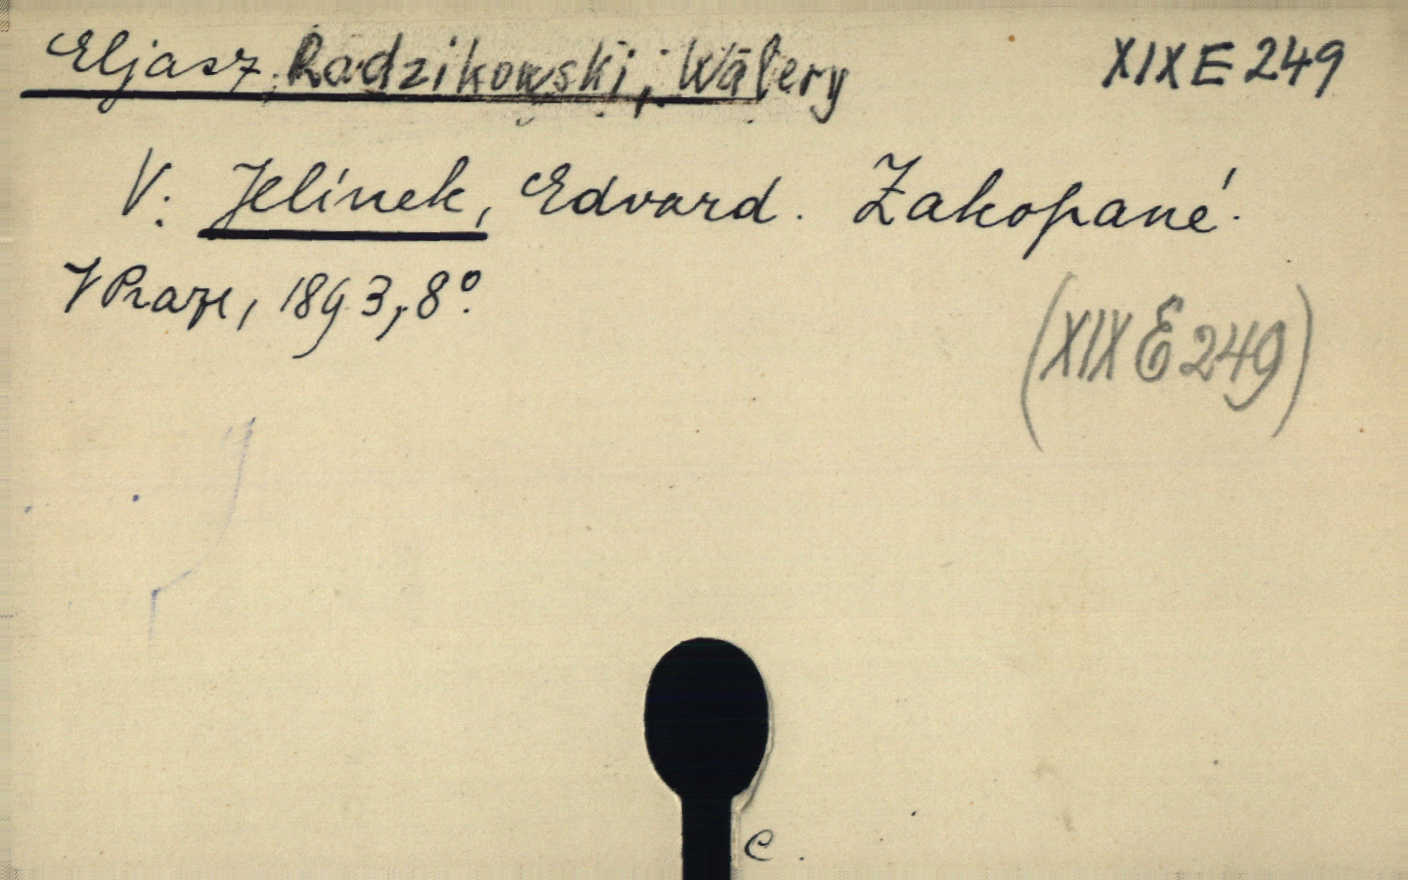 Eljasz Radzikowski, Walery XIX E 249
V: Jelínek, Edvard. Zakopané.
V Praze, 1893, 8°.
(XIX E 249)
C.